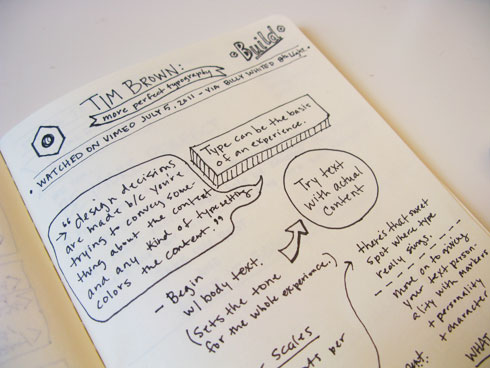 TIM BROWN:
more perfect typography
Build
• WATCHED ON VIMEO JULY 5, 2011 - VIA BILLY WHITED
Type can be the basis
of an experience.
"design decisions
are made b/c you're
trying to convey some-
thing about the content
and any kind of typesetting
colors the content."
Try text
with actual
content
- Begin
w/ body text.
(sets the tone
for the whole experience.)
there's that sweet
spot where type
really sings.
move on to spicing
your text person-
ality with markers
+ personality
+ character
SCALES
per
WHAT